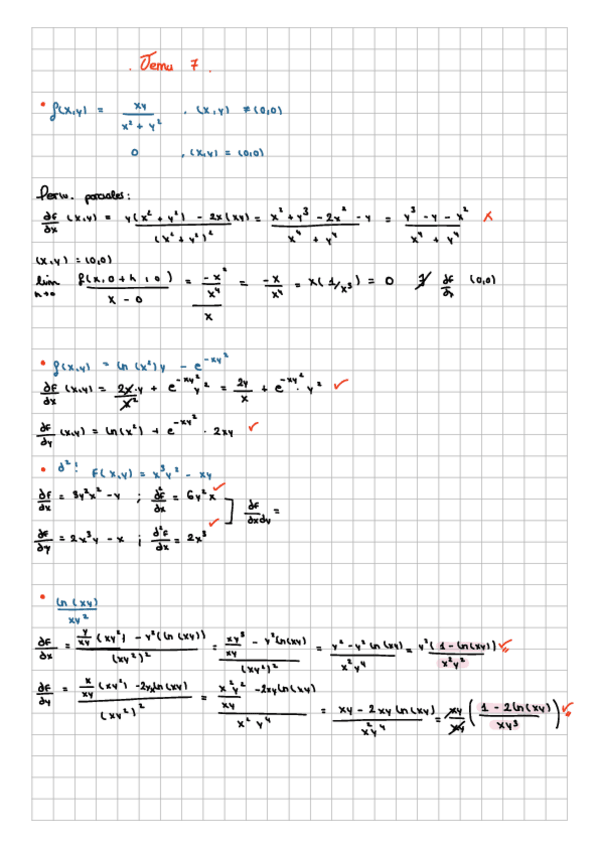 . Tema 7 .
• f(x,y) = xy / (x² + y²) , (x,y) ≠ (0,0)
0 , (x,y) = (0,0)
Deriv. parciales:
∂f/∂x (x,y) = (y(x² + y²) - 2x(xy)) / (x² + y²)² = (x² + y³ - 2x² - y) / (x⁴ + y⁴) = (y³ - y - x²) / (x⁴ + y⁴) ✗
(x,y) = (0,0)
lim h→0 f(x,0+h,0) / (x - 0) = ((-x² / x⁴) / x) = -x / x⁴ = x(1/x³) = 0 ∄ ∂f/∂x (0,0)
• f(x,y) = ln(x²)y - e^(-xy²)
∂f/∂x (x,y) = (2x / x²)·y + e^(-xy²) y² = 2y/x + e^(-xy²)· y² ✓
∂f/∂y (x,y) = ln(x²) + e^(-xy²) · 2xy ✓
• ∂²! F(x,y) = x³y² - xy
∂f/∂x = 3y²x² - y ; ∂²f/∂x = 6y²x ✓ ] ∂f/∂x∂y =
∂f/∂y = 2x³y - x ; ∂²f/∂x = 2x³ ✓
• ln(xy) / xy²
∂f/∂x = ((y/xy)(xy²) - y²(ln(xy))) / (xy²)² = ((xy³/xy) - y²ln(xy)) / (xy²)² = (y² - y² ln(xy)) / x²y⁴ = y²(1 - ln(xy)) / x²y² ✓
∂f/∂y = ((x/xy)(xy²) - 2yxln(xy)) / (xy²)² = ((x²y²/xy) - 2xyln(xy)) / x²y⁴ = (xy - 2xy ln(xy)) / x²y⁴ = xy/xy ((1 - 2ln(xy)) / xy³) ✓